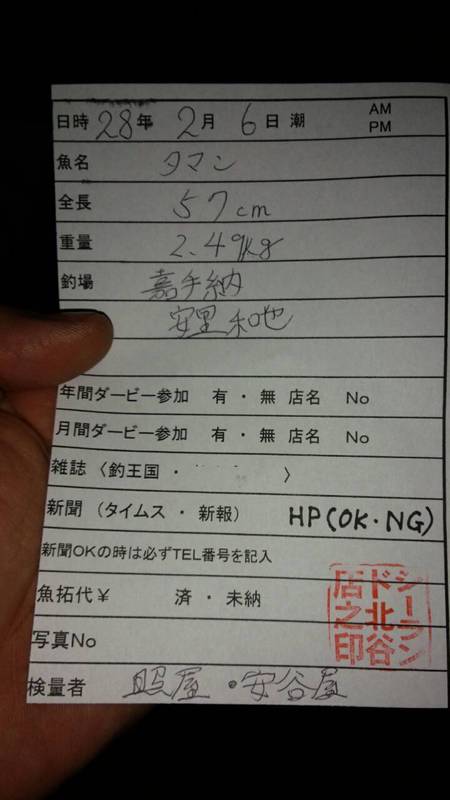 日時 28年 2月 6日 潮 AM PM
魚名 タマン
全長 57cm
重量 2.49kg
釣場 嘉手納
安里和也
年間ダービー参加 有・無 店名 No
月間ダービー参加 有・無 店名 No
雑誌〈釣王国・ 〉
新聞 (タイムス・新報) HP(OK・NG)
新聞OKの時は必ずTEL番号を記入
魚拓代¥ 済・未納
写真No
検量者 照屋・安谷屋
シーランド北谷店之印